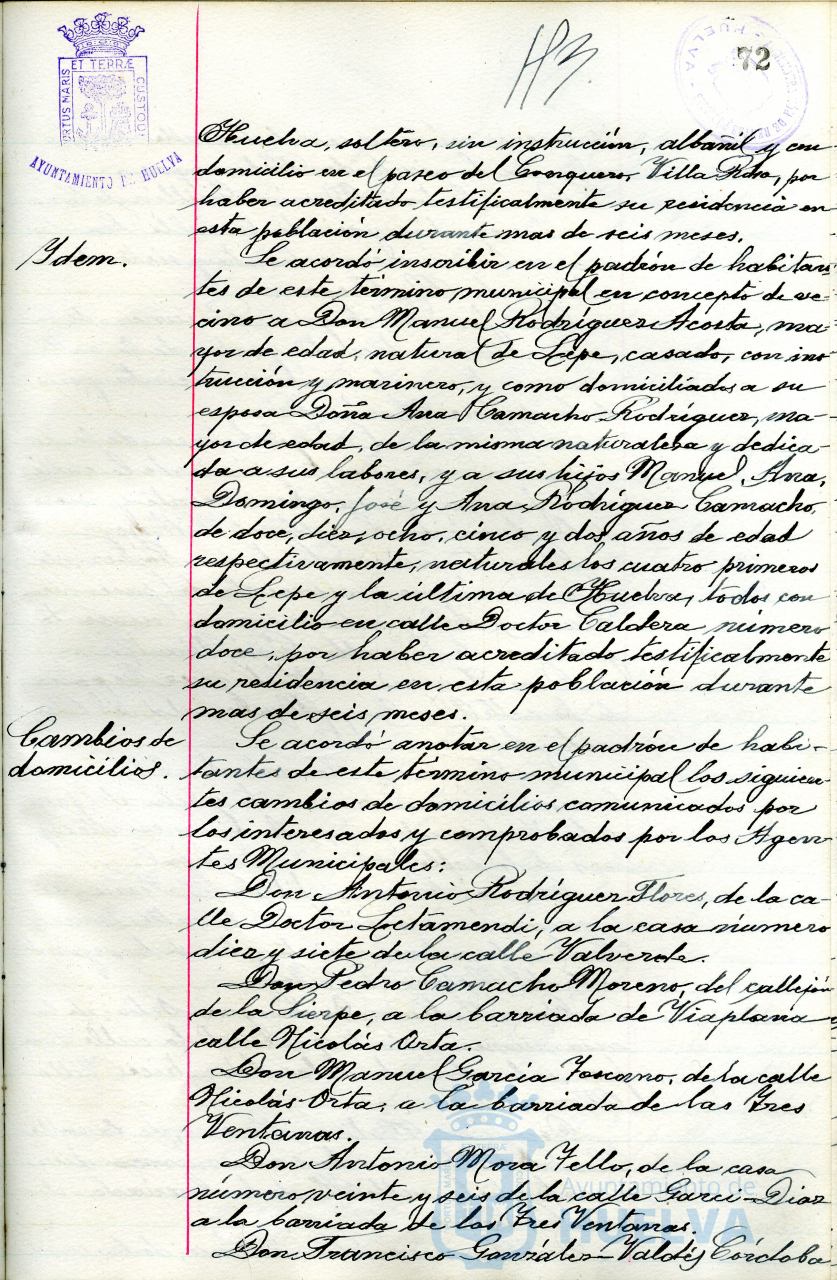 ET TERRÆ
PORTUS MARIS
CUSTODI
AYUNTAMIENTO DE HUELVA
72
HUELVA
Huelva, soltero, sin instrucción, albañil y con
domicilio en el paseo del Conquero, Villa Rosa, por
haber acreditado testificalmente su residencia en
esta población durante mas de seis meses.
Idem.
Se acordó inscribir en el padrón de habitan-
tes de este término municipal en concepto de ve-
cino a Don Manuel Rodríguez Acosta, ma-
yor de edad, natural de Lepe, casado, con ins-
trucción y marinero, y como domiciliados a su
esposa Doña Ana Camacho Rodríguez, ma-
yor de edad, de la misma naturaleza y dedica-
da a sus labores, y a sus hijos Manuel, Ana,
Domingo, José y Ana Rodríguez Camacho,
de doce, diez, ocho, cinco y dos años de edad
respectivamente, naturales los cuatro primeros
de Lepe y la última de Huelva, todos con
domicilio en calle Doctor Caldera número
doce, por haber acreditado testificalmente
su residencia en esta población durante
mas de seis meses.
Cambios de
domicilios.
Se acordó anotar en el padrón de habi-
tantes de este término municipal los siguien-
tes cambios de domicilios comunicados por
los interesados y comprobados por los Agen-
tes Municipales:
Don Antonio Rodríguez Flores, de la ca-
lle Doctor Letamendi, a la casa número
diez y siete de la calle Valverde.
Don Pedro Camacho Moreno, del callejón
de la Sierpe, a la barriada de Viaplana
calle Nicolás Orta.
Don Manuel García Toscano, de la calle
Nicolás Orta, a la barriada de las Tres
Ventanas.
Don Antonio Mora Tello, de la casa
número veinte y seis de la calle Garci-Diaz
a la barriada de las Tres Ventanas.
Don Francisco González-Valdés Córdoba
Ayuntamiento de
HUELVA